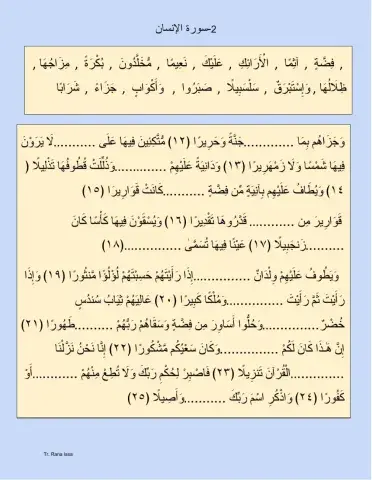 2-سورة الإنسان
, فِضَّةٍ , آثِمًا , الْأَرَائِكِ , عَلَيْكَ , نَعِيمًا , مُّخَلَّدُونَ , بُكْرَةً , مِزَاجُهَا ,
ظِلَالُهَا , وَإِسْتَبْرَقٌ , سَلْسَبِيلًا , صَبَرُوا , وَأَكْوَابٍ , جَزَاءً , شَرَابًا
وَجَزَاهُم بِمَا .............جَنَّةً وَحَرِيرًا (١٢) مُّتَّكِئِينَ فِيهَا عَلَى ..........لَا يَرَوْنَ
فِيهَا شَمْسًا وَلَا زَمْهَرِيرًا (١٣) وَدَانِيَةً عَلَيْهِمْ .............وَذُلِّلَتْ قُطُوفُهَا تَذْلِيلًا (
١٤) وَيُطَافُ عَلَيْهِم بِآنِيَةٍ مِّن فِضَّةٍ ..........كَانَتْ قَوَارِيرَا (١٥)
قَوَارِيرَ مِن ........... قَدَّرُوهَا تَقْدِيرًا (١٦) وَيُسْقَوْنَ فِيهَا كَأْسًا كَانَ
..........زَنجَبِيلًا (١٧) عَيْنًا فِيهَا تُسَمَّىٰ ...............(١٨)
وَيَطُوفُ عَلَيْهِمْ وِلْدَانٌ ...............إِذَا رَأَيْتَهُمْ حَسِبْتَهُمْ لُؤْلُؤًا مَّنثُورًا (١٩) وَإِذَا
رَأَيْتَ ثَمَّ رَأَيْتَ ...............وَمُلْكًا كَبِيرًا (٢٠) عَالِيَهُمْ ثِيَابُ سُندُسٍ
خُضْرٌ...............وَحُلُّوا أَسَاوِرَ مِن فِضَّةٍ وَسَقَاهُمْ رَبُّهُمْ ..........طَهُورًا (٢١)
إِنَّ هَٰذَا كَانَ لَكُمْ ...............وَكَانَ سَعْيُكُم مَّشْكُورًا (٢٢) إِنَّا نَحْنُ نَزَّلْنَا
..............الْقُرْآنَ تَنزِيلًا (٢٣) فَاصْبِرْ لِحُكْمِ رَبِّكَ وَلَا تُطِعْ مِنْهُمْ ............أَوْ
كَفُورًا (٢٤) وَاذْكُرِ اسْمَ رَبِّكَ ...........وَأَصِيلًا (٢٥)
Tr. Rana Issa